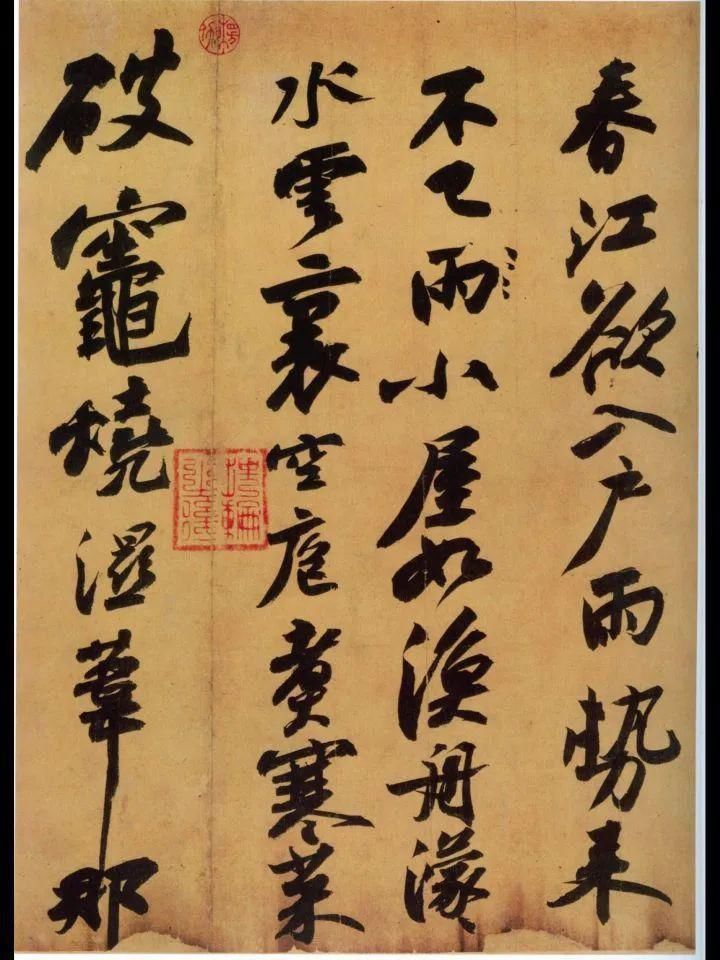 春江欲入戶雨勢来
不已雨小屋如漁舟濛〻
水雲裏空庖煮寒菜
破竈燒濕葦那